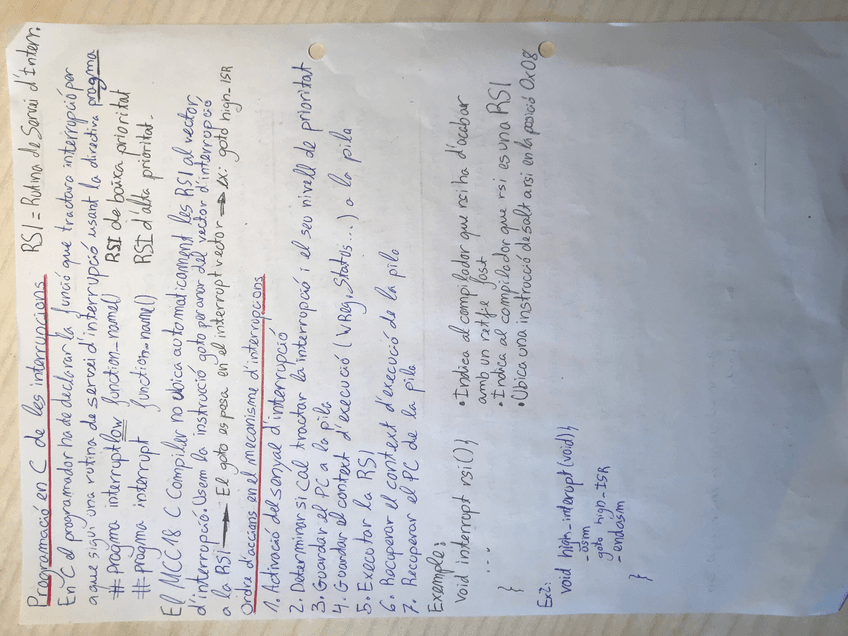 Programació en C de les interrupcions RSI = Rutina de Servei d'Interr.
En C el programador ha de declarar la funció que tractara interrupció per
a que sigui una rutina de servei d'interrupció usant la directiva pragma
#pragma interruptlow function_name() RSI de baixa prioritat
#pragma interrupt function-name() RSI d'alta prioritat.
El MCC18 C Compiler no ubica automaticament les RSI al vector
d'interrupció. Usem la instrucció goto per anar del vector d'interrupció
a la RSI → El goto es posa en el interrupt vector → Ex: goto high_ISR
Ordre d'accions en el mecanisme d'interrupcions
1. Activació del senyal d'interrupció
2. Determinar si cal tractar la interrupció i el seu nivell de prioritat
3. Guardar el PC a la pila
4. Guardar el context d'execució (WReg, Status...) a la pila
5. Executar la RSI
6. Recuperar el context d'execució de la pila
7. Recuperar el PC de la pila
Exemple:
void interrupt rsi(){
....
}
• Indica al compilador que rsi ha d'acabar
amb un retfie fast
• Indica al compilador que rsi es una RSI
• Ubica una instrucció de salt a rsi en la posció 0x08
Ex2:
void high_interupt(void){
-asm
goto high-ISR
-endasm
}